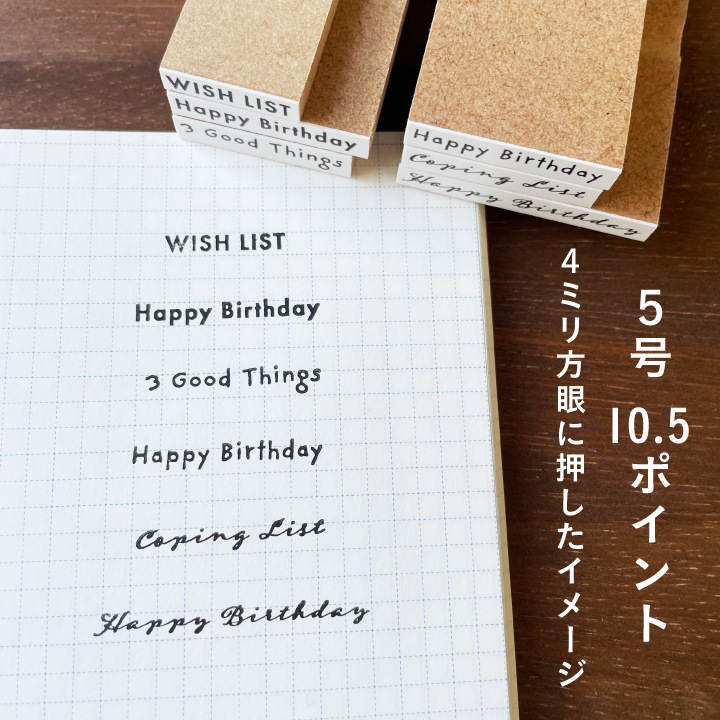 WISH LIST
Happy Birthday
3 Good Things
Happy Birthday
Coping List
Happy Birthday
WISH LIST
Happy Birthday
3 Good Things
Happy Birthday
Coping List
Happy Birthday
5号 10.5ポイント
4ミリ方眼に押したイメージ